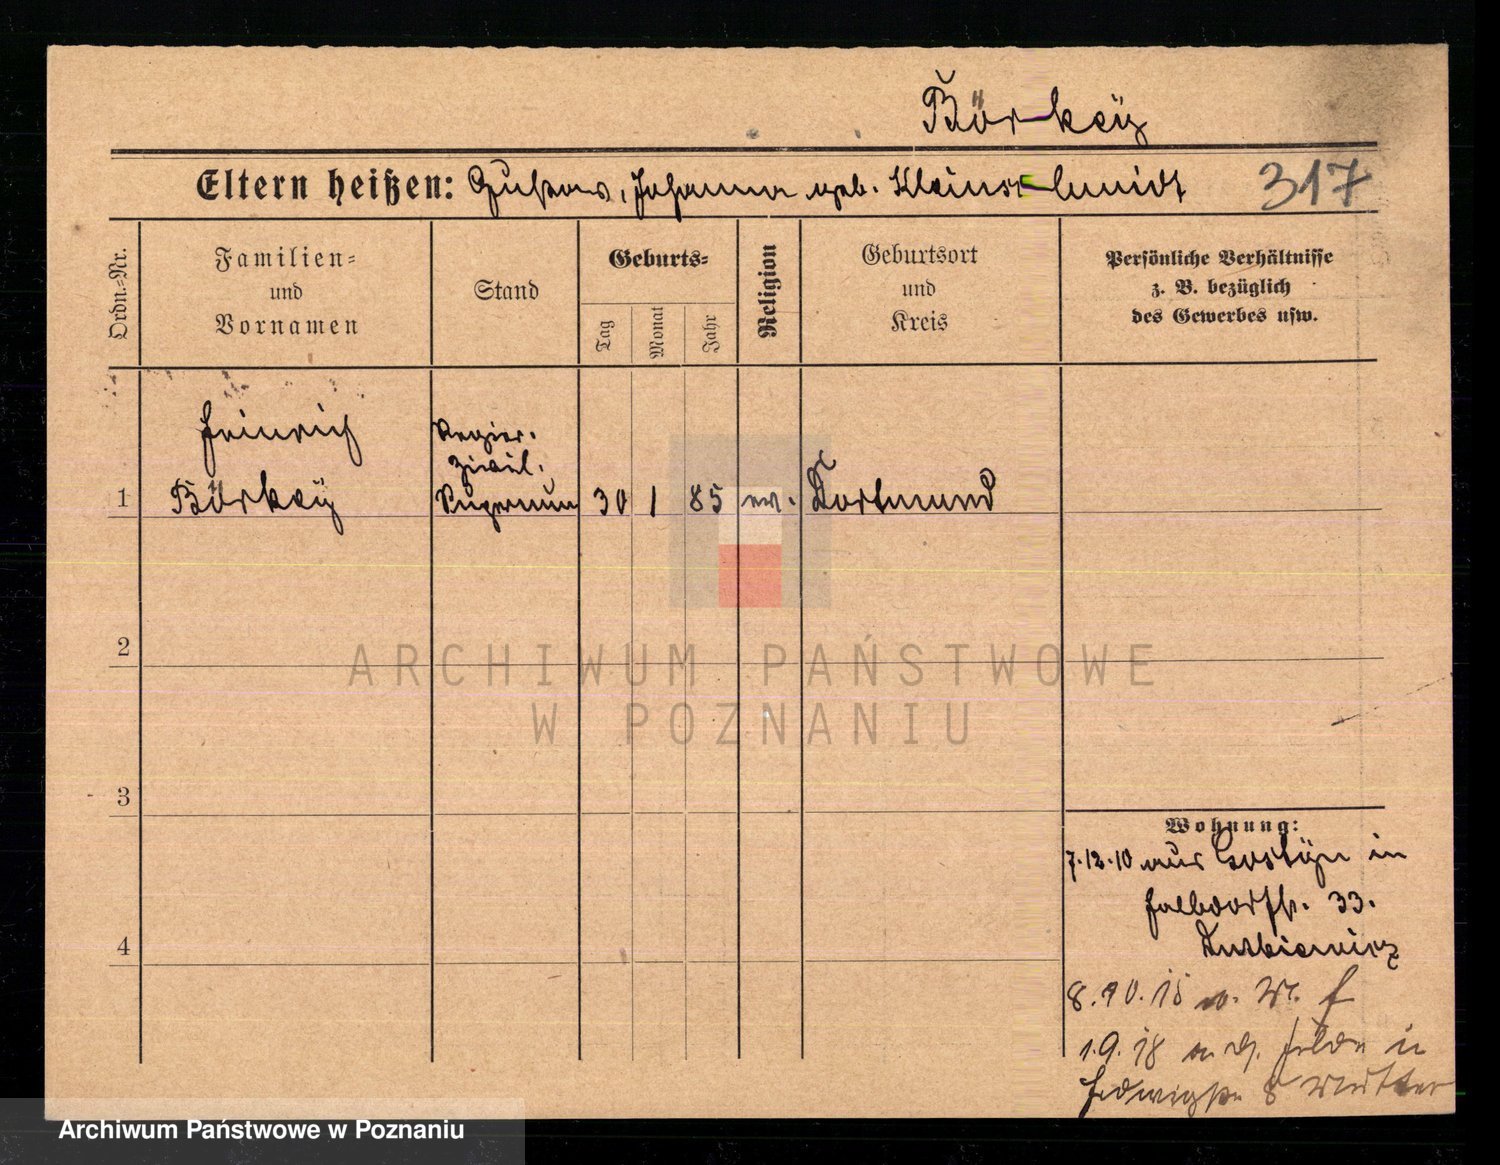 Börkey
Eltern heißen: Gustav, Johanna geb. Kleinschmidt 317
Ordn.-Nr.
Familien-
und
Vornamen
Stand
Geburts-
Tag
Monat
Jahr
Religion
Geburtsort
und
Kreis
Persönliche Verhältnisse
z. B. bezüglich
des Gewerbes usw.
Heinrich
Regier.
Zivil.
1 Börkey Supernum 30 1 85 ev. Dortmund
2
ARCHIWUM PAŃSTWOWE
W POZNANIU
3
Wohnung:
7.12.10 aus Gostyn in
Halbdorfstr. 33.
4
8.10.15
1.9.18 a. d. Felde in
Hedwigstr. 8
Archiwum Państwowe w Poznaniu